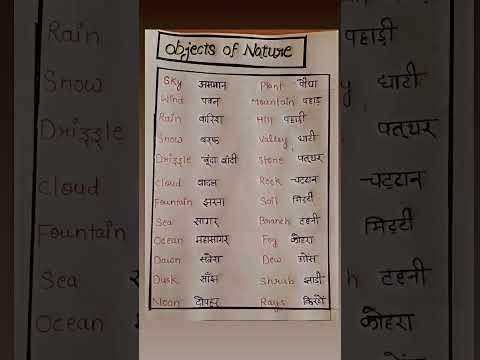 Objects of Nature
Sky असमान Plant पौधा
Wind पवन Mountain पहाड़
Rain बारिश Hill पहाड़ी
Snow बरफ Valley घाटी
Drizzle बूंदा बांदी Stone पत्थर
Cloud बादल Rock चट्टान
Fountain झरना Soil मिट्टी
Sea सागर Branch टहनी
Ocean महासागर Fog कोहरा
Dawn सवेरा Dew ओस
Dusk साँझ Shrub झाड़ी
Noon दोपहर Rays किरणें
Rain
Snow
Drizzle
Cloud
Fountain
Sea
Ocean
पहाड़ी
घाटी
पत्थर
चट्टान
मिट्टी
टहनी
कोहरा